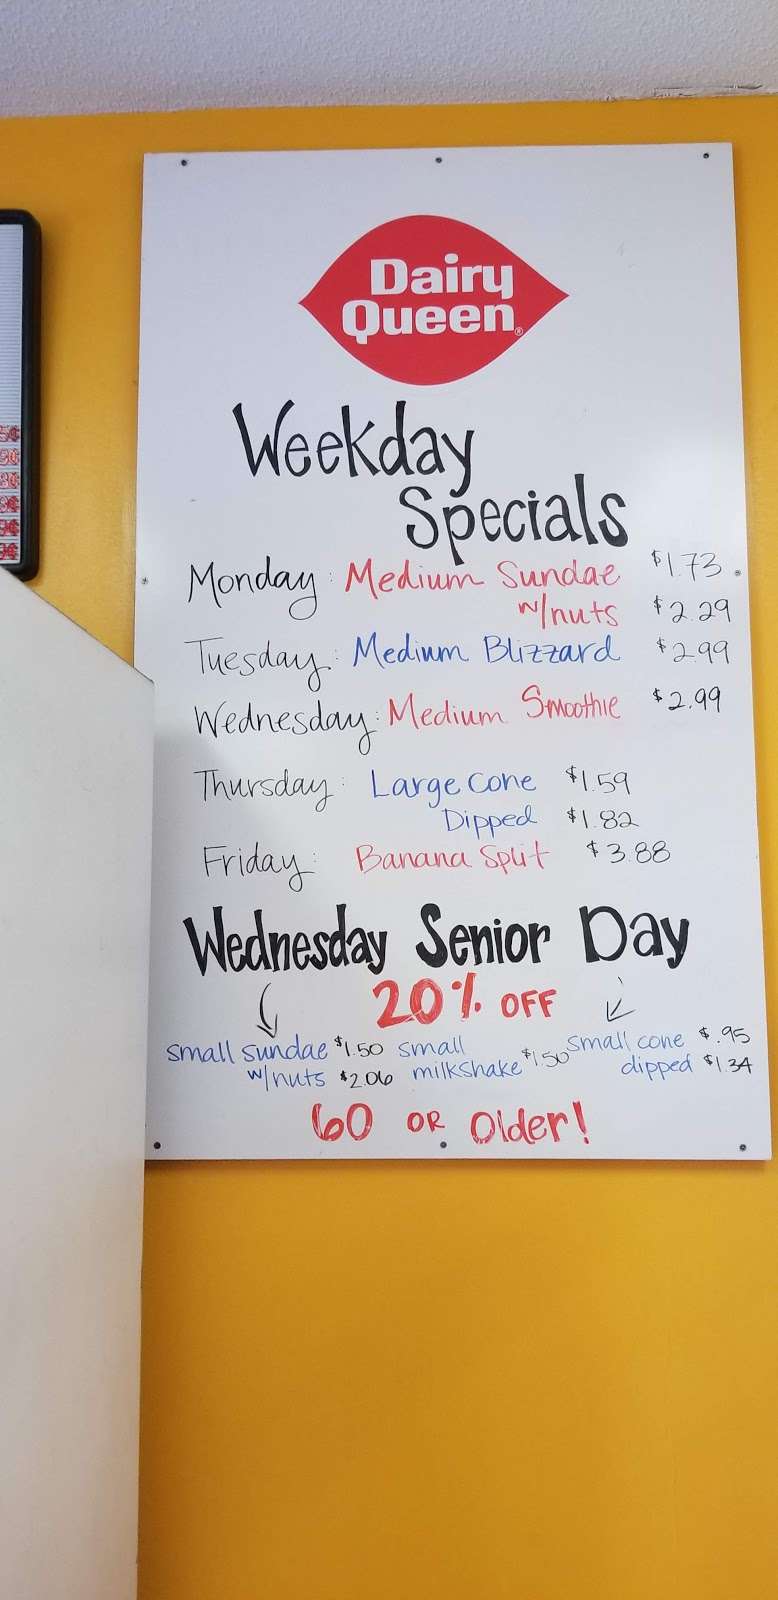 Dairy
Queen®
Weekday
Specials
Monday: Medium Sundae $1.73
w/nuts $2.29
Tuesday: Medium Blizzard $2.99
Wednesday: Medium Smoothie $2.99
Thursday: Large Cone $1.59
Dipped $1.82
Friday: Banana Split $3.88
Wednesday Senior Day
20% OFF
small sundae $1.50 small small cone $.95
w/nuts $2.06 milkshake $1.50 dipped $1.34
60 OR Older!